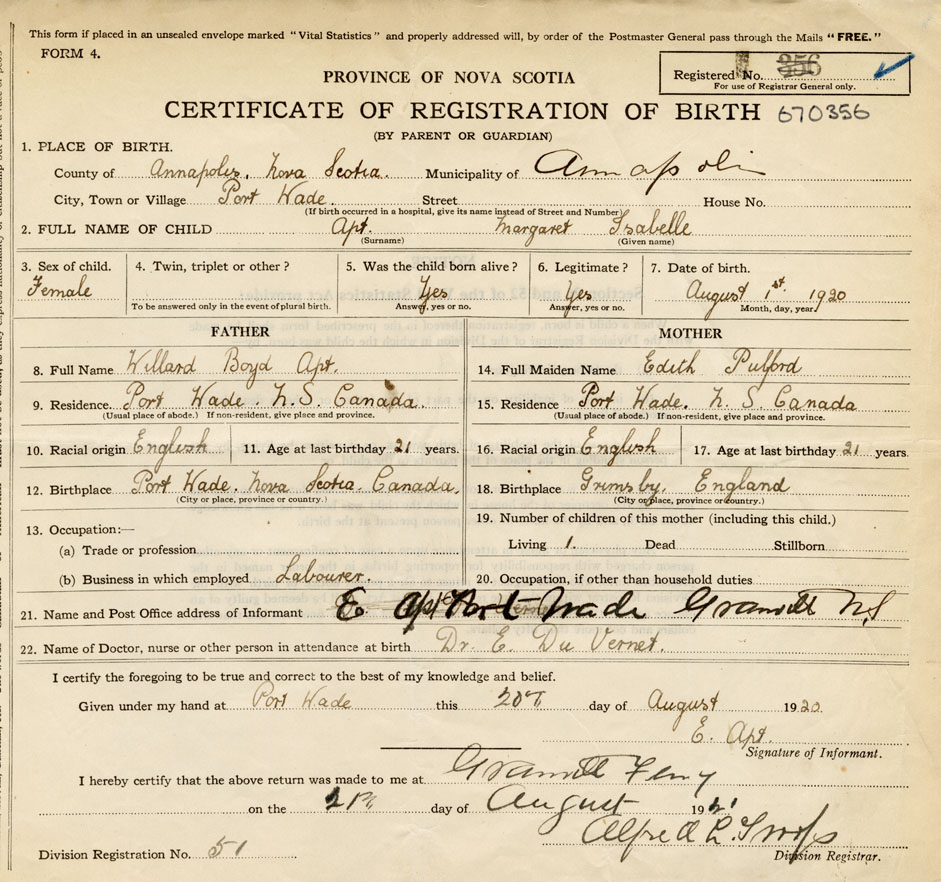 This form if placed in an unsealed envelope marked "Vital Statistics" and properly addressed will, by order of the Postmaster General pass through the Mails "FREE."
FORM 4.
Registered No. 356
For use of Registrar General only.
PROVINCE OF NOVA SCOTIA
CERTIFICATE OF REGISTRATION OF BIRTH 670356
(BY PARENT OR GUARDIAN)
1. PLACE OF BIRTH.
County of Annapolis. Nova Scotia. Municipality of Annapolis
City, Town or Village Port Wade. Street House No.
(If birth occurred in a hospital, give its name instead of Street and Number)
2. FULL NAME OF CHILD Apt. Margaret Isabelle
(Surname) (Given name)
3. Sex of child. 4. Twin, triplet or other? 5. Was the child born alive? 6. Legitimate? 7. Date of birth.
Female Yes Yes August 1st. 1920
To be answered only in the event of plural birth. Answer, yes or no. Answer, yes or no. Month, day, year
FATHER MOTHER
8. Full Name Willard Boyd Apt. 14. Full Maiden Name Edith Pulford
9. Residence. Port Wade. N.S. Canada. 15. Residence Port Wade. N.S. Canada
(Usual place of abode.) If non-resident, give place and province. (Usual place of abode.) If non-resident, give place and province.
10. Racial origin English 11. Age at last birthday 21 years. 16. Racial origin English 17. Age at last birthday 21 years.
12. Birthplace Port Wade. Nova Scotia. Canada. 18. Birthplace Grimsby. England
(City or place, province or country.) (City or place, province or country.)
13. Occupation:— 19. Number of children of this mother (including this child.)
(a) Trade or profession Living 1. Dead Stillborn
(b) Business in which employed Labourer. 20. Occupation, if other than household duties
21. Name and Post Office address of Informant E Apt Port Wade Granville NS
22. Name of Doctor, nurse or other person in attendance at birth Dr. E. Du Vernet.
I certify the foregoing to be true and correct to the best of my knowledge and belief.
Given under my hand at Port Wade this 20 day of August 1920.
E. Apt.
Signature of Informant.
I hereby certify that the above return was made to me at Granville Ferry
on the day of August 19
Alfred L.
Division Registrar.
Division Registration No. 51